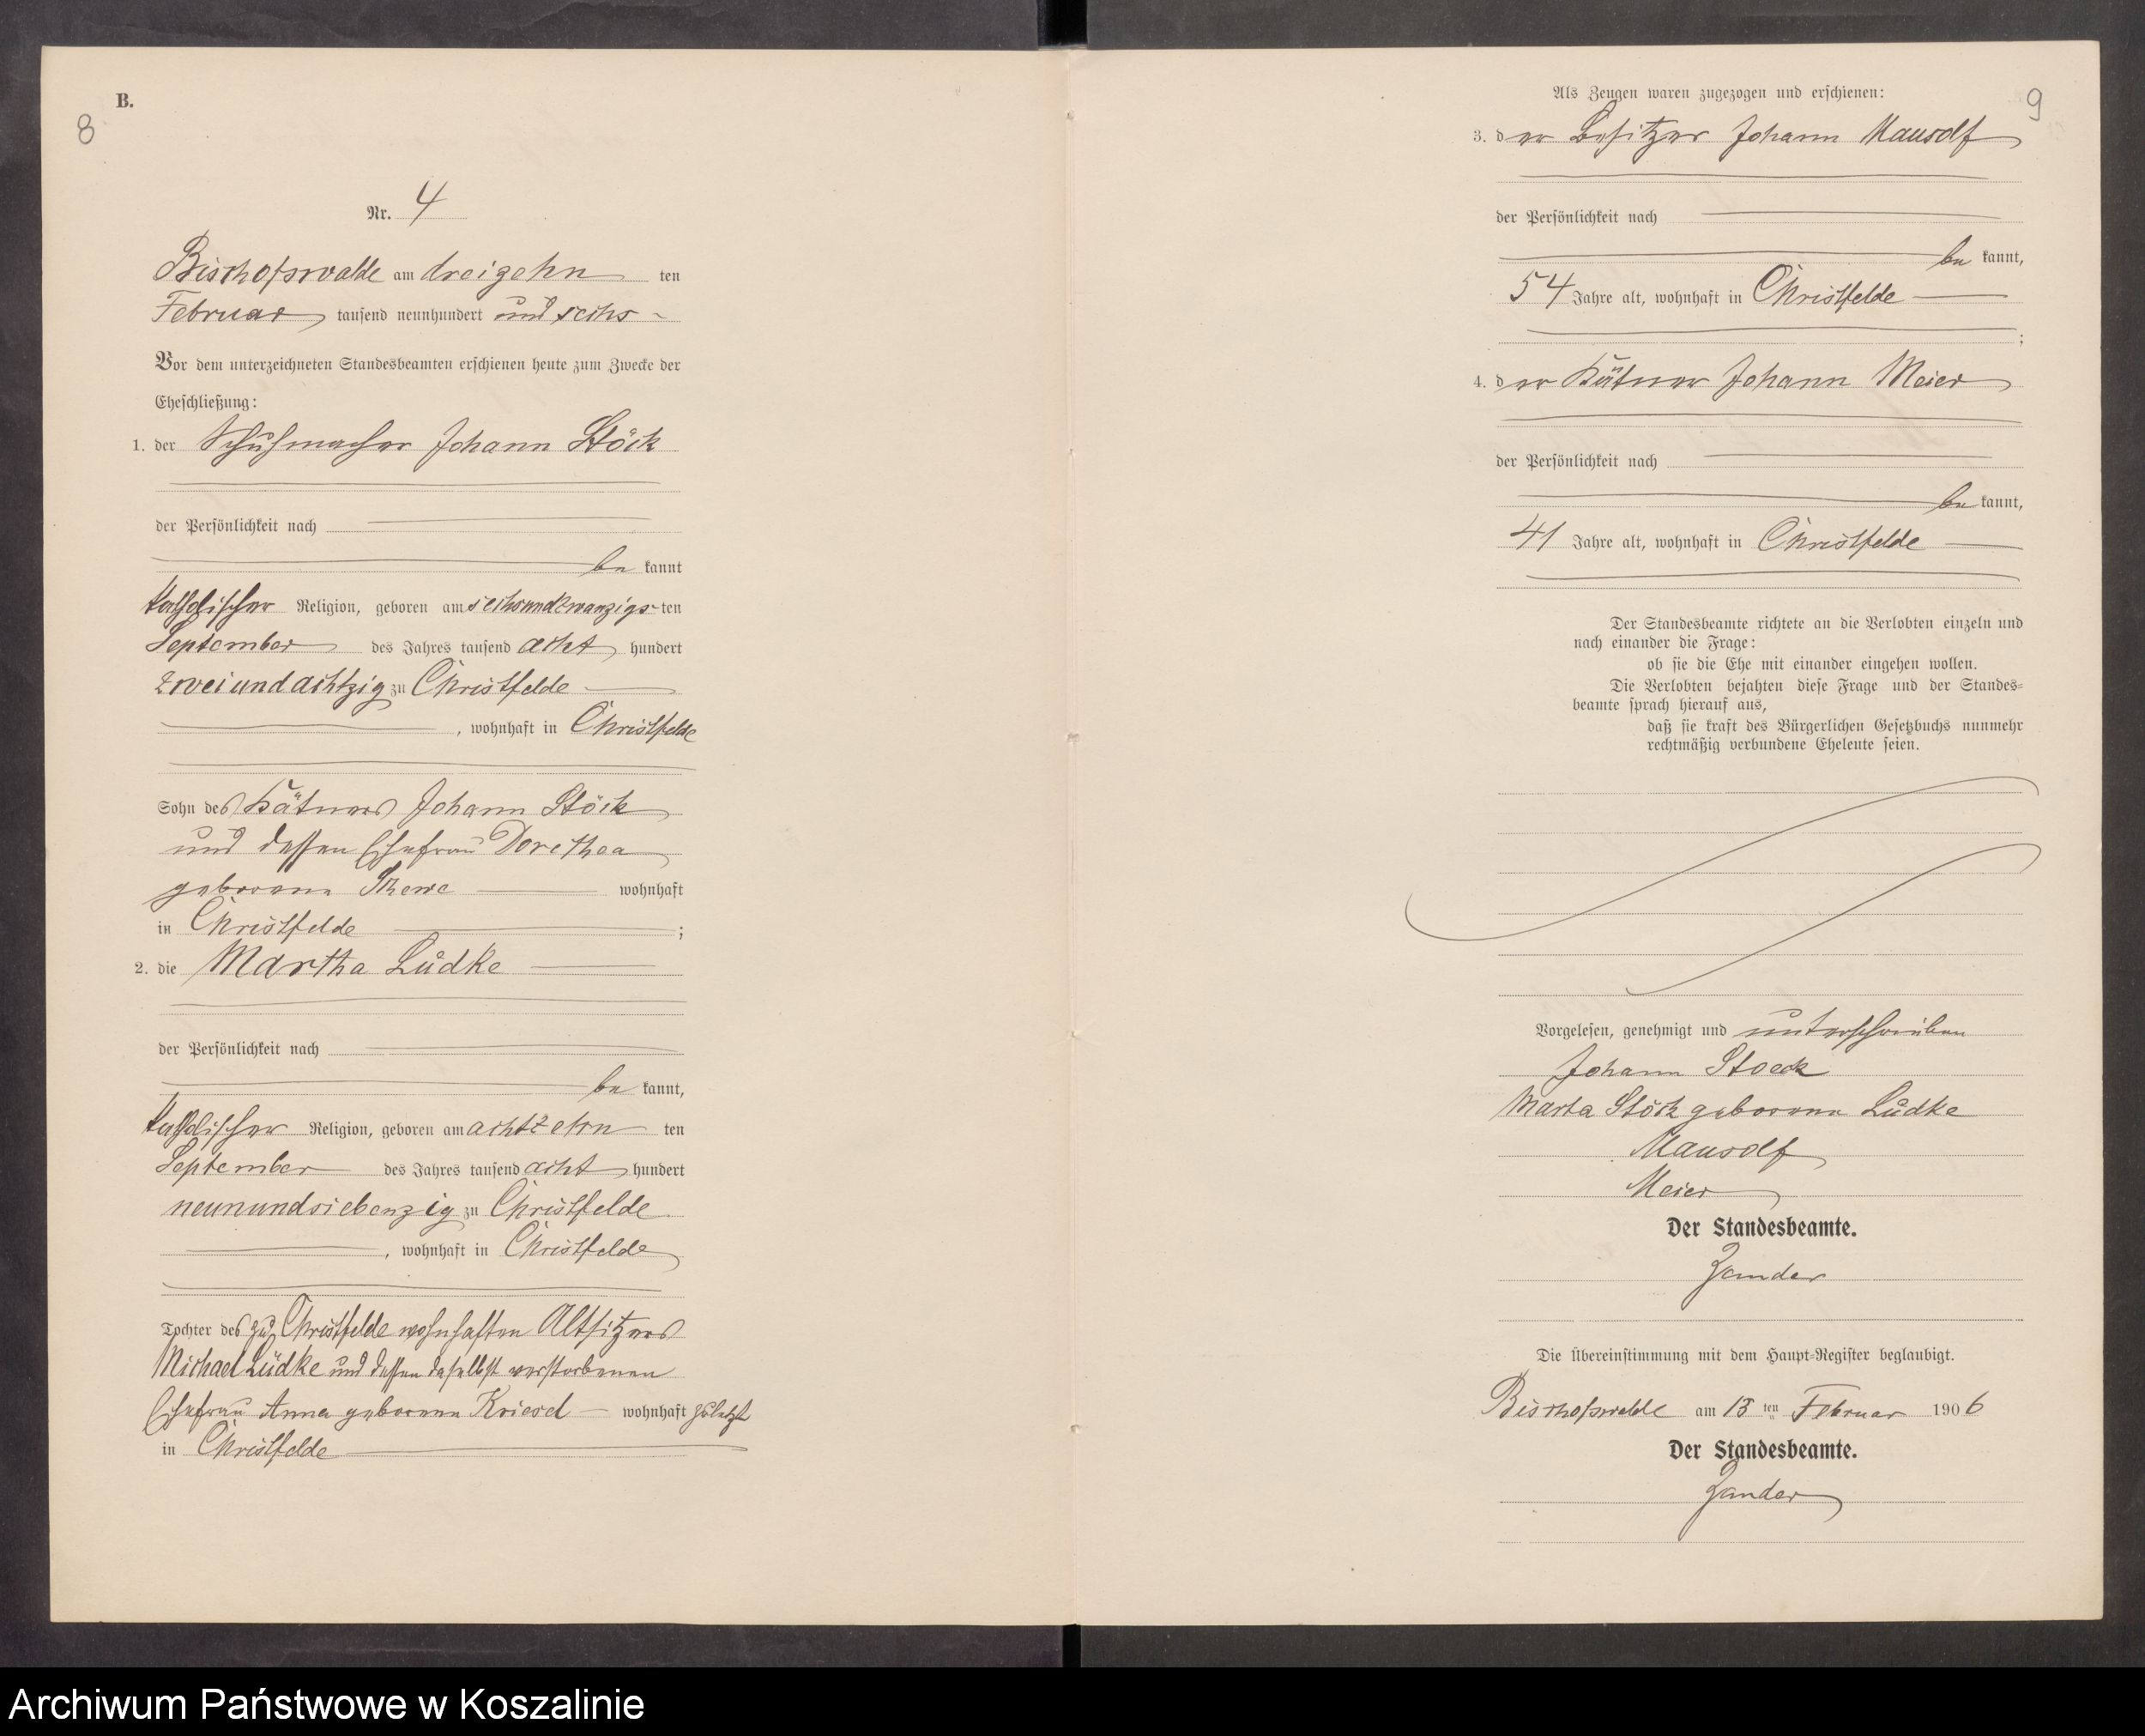 B.
8
Nr. 4
Bischofswalde am dreizehn ten
Februar tausend neunhundert und sechs
Vor dem unterzeichneten Standesbeamten erschienen heute zum Zwecke der
Eheschließung:
1. der Schuhmacher Johann Stöck
der Persönlichkeit nach
be kannt
katholischer Religion, geboren am sechsundzwanzigs ten
September des Jahres tausend acht hundert
zweiundachtzig zu Christfelde
, wohnhaft in Christfelde
Sohn des Kätners Johann Stöck
und dessen Ehefrau Dorethea
geborene wohnhaft
in Christfelde ;
2. die Martha Lüdke
der Persönlichkeit nach
be kannt,
katholischer Religion, geboren am achtzehn ten
September des Jahres tausend acht hundert
neunundsiebenzig zu Christfelde
, wohnhaft in Christfelde
Tochter des zu Christfelde wohnhaften Altsitzers
Michael Lüdke und dessen daselbst verstorbenen
Ehefrau Anna geborene Kriesel wohnhaft zuletzt
in Christfelde
Als Zeugen waren zugezogen und erschienen:
9
3. der Besitzer Johann Mausolf
der Persönlichkeit nach
be kannt,
54 Jahre alt, wohnhaft in Christfelde
;
4. der Kätner Johann Meier
der Persönlichkeit nach
be kannt,
41 Jahre alt, wohnhaft in Christfelde
Der Standesbeamte richtete an die Verlobten einzeln und
nach einander die Frage:
ob sie die Ehe mit einander eingehen wollen.
Die Verlobten bejahten diese Frage und der Standes-
beamte sprach hierauf aus,
daß sie kraft des Bürgerlichen Gesetzbuchs nunmehr
rechtmäßig verbundene Eheleute seien.
Vorgelesen, genehmigt und unterschrieben
Johann Stoeck
Marta Stöck geborene Lüdke
Mausolf
Meier
Der Standesbeamte.
Zander
Die Übereinstimmung mit dem Haupt-Register beglaubigt.
Bischofswalde am 13 ten Februar 1906
Der Standesbeamte.
Zander
Archiwum Państwowe w Koszalinie